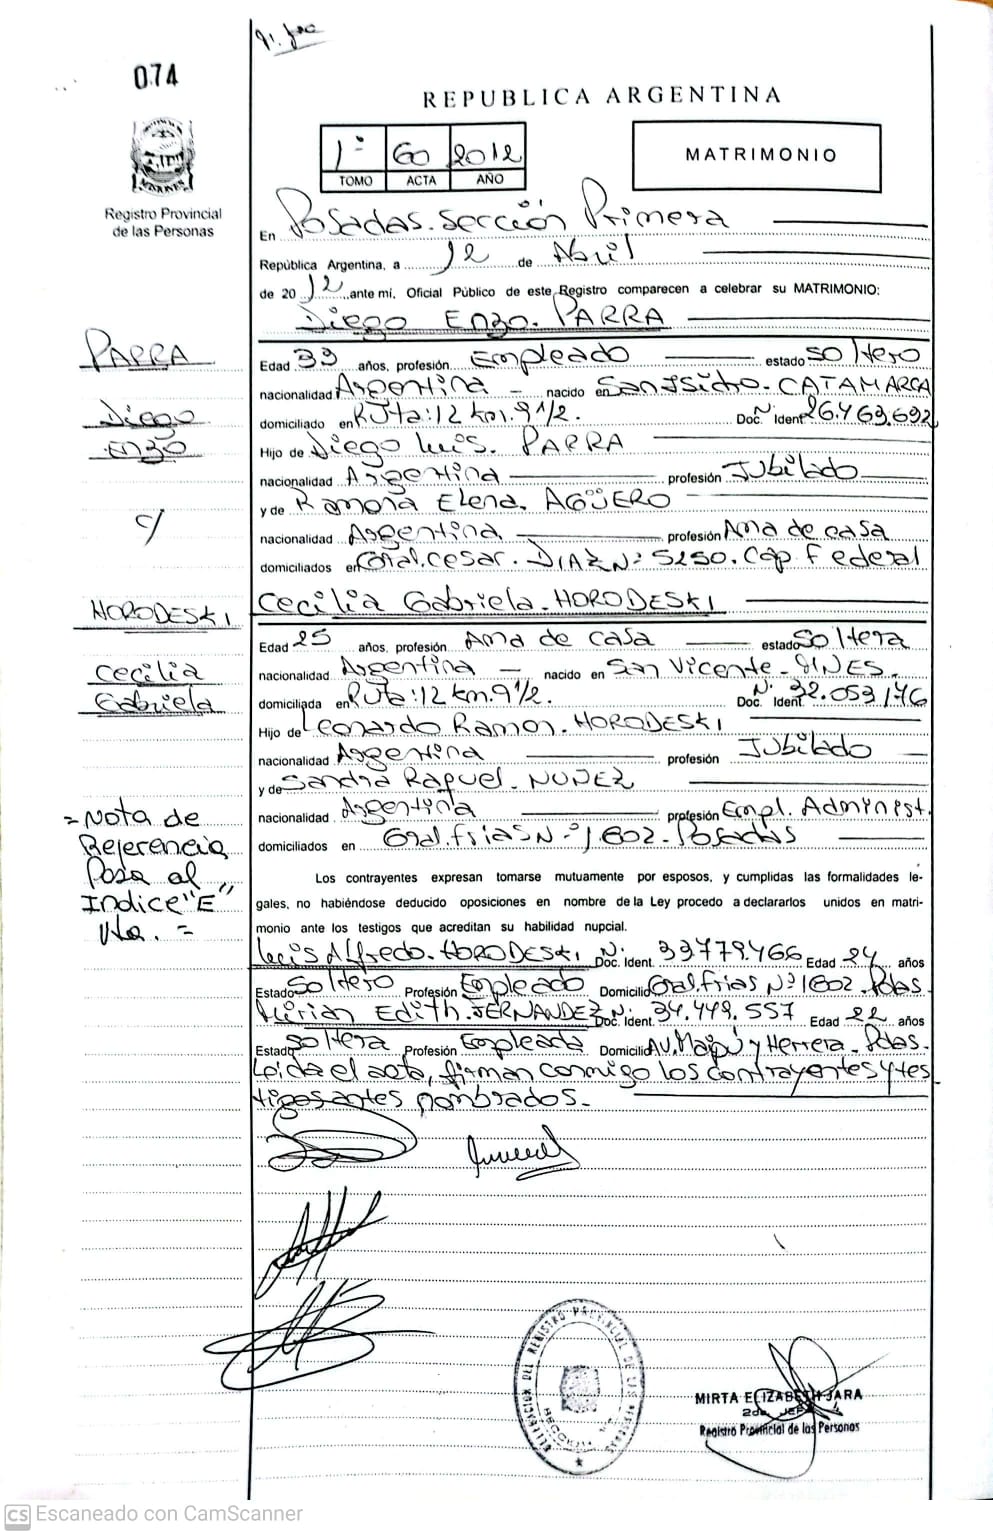 074
REPUBLICA ARGENTINA
1º 60 2012
TOMO ACTA AÑO
MATRIMONIO
Registro Provincial
de las Personas
En Posadas. Sección Primera
República Argentina, a 12 de Abril
de 2012 ante mí, Oficial Público de este Registro comparecen a celebrar su MATRIMONIO:
Diego Enzo. PARRA
PARRA
Diego
Enzo
c/
HORODESKI
Cecilia
Gabriela
= Nota de
Referencia
Pasa al
Indice "E"
Vta. =
Edad 33 años, profesión Empleado estado soltero
nacionalidad Argentina - nacido en San Isidro - CATAMARCA
domiciliado en Ruta: 12 km. 9 1/2. Doc. Ident. Nº 26.769.692
Hijo de Diego Luis. PARRA
nacionalidad Argentina profesión Jubilado
y de Ramona Elena. AGÜERO
nacionalidad Argentina profesión Ama de casa
domiciliados en Gral. Cesar. DIAZ Nº 5250. Cap. Federal
Cecilia Gabriela. HORODESKI
Edad 25 años, profesión Ama de casa estado soltera
nacionalidad Argentina - nacido en San Vicente -
domiciliada en Ruta: 12 km. 9 1/2. Doc. Ident. Nº 32.053.146
Hijo de Leonardo Ramon. HORODESKI
nacionalidad Argentina profesión Jubilado
y de Sandra Raquel. NUÑEZ
nacionalidad Argentina profesión Empl. Administ.
domiciliados en Gral. frias Nº 1602 - Posadas
Los contrayentes expresan tomarse mutuamente por esposos, y cumplidas las formalidades le-
gales, no habiéndose deducido oposiciones en nombre de la Ley procedo a declararlos unidos en matri-
monio ante los testigos que acreditan su habilidad nupcial.
Luis Alfredo. HORODESKI Doc. Ident. Nº 33.779.466 Edad 24 años
Estado soltero Profesión Empleado Domicilio Gral. frias Nº 1602. Pdas.
Mirian Edith. FERNANDEZ Doc. Ident. Nº 34.449.557 Edad 22 años
Estado soltera Profesión Empleada Domicilio AV. Maipú y Herrera - Pdas.
Leida el acta, firman conmigo los contrayentes y tes
tigos antes nombrados.-
DELEGACION DEL REGISTRO PROVINCIAL DE LAS PERSONAS
MIRTA ELIZABETH JARA
2da. JEFA
Registro Provincial de las Personas
CS Escaneado con CamScanner